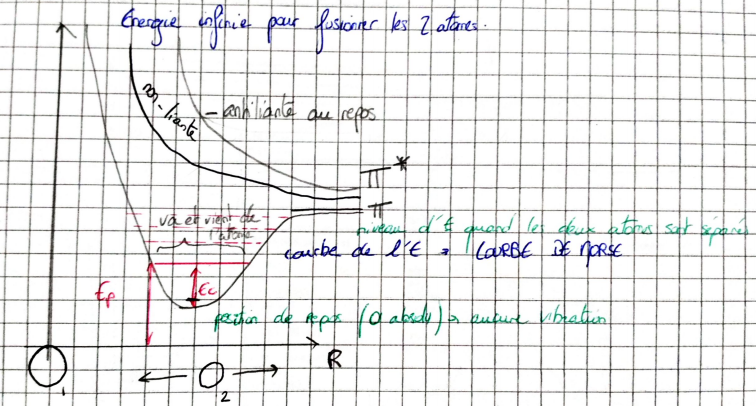 Energie infinie pour fusionner les 2 atomes.
non-liante
antiliante au repos
π*
π
va et vient de
l'atome
niveau d'E quand les deux atomes sont séparés
courbe de l'E = COURBE DE MORSE
Ep
Ec
position de repos (0 absolu) = aucune vibration
R
1
2